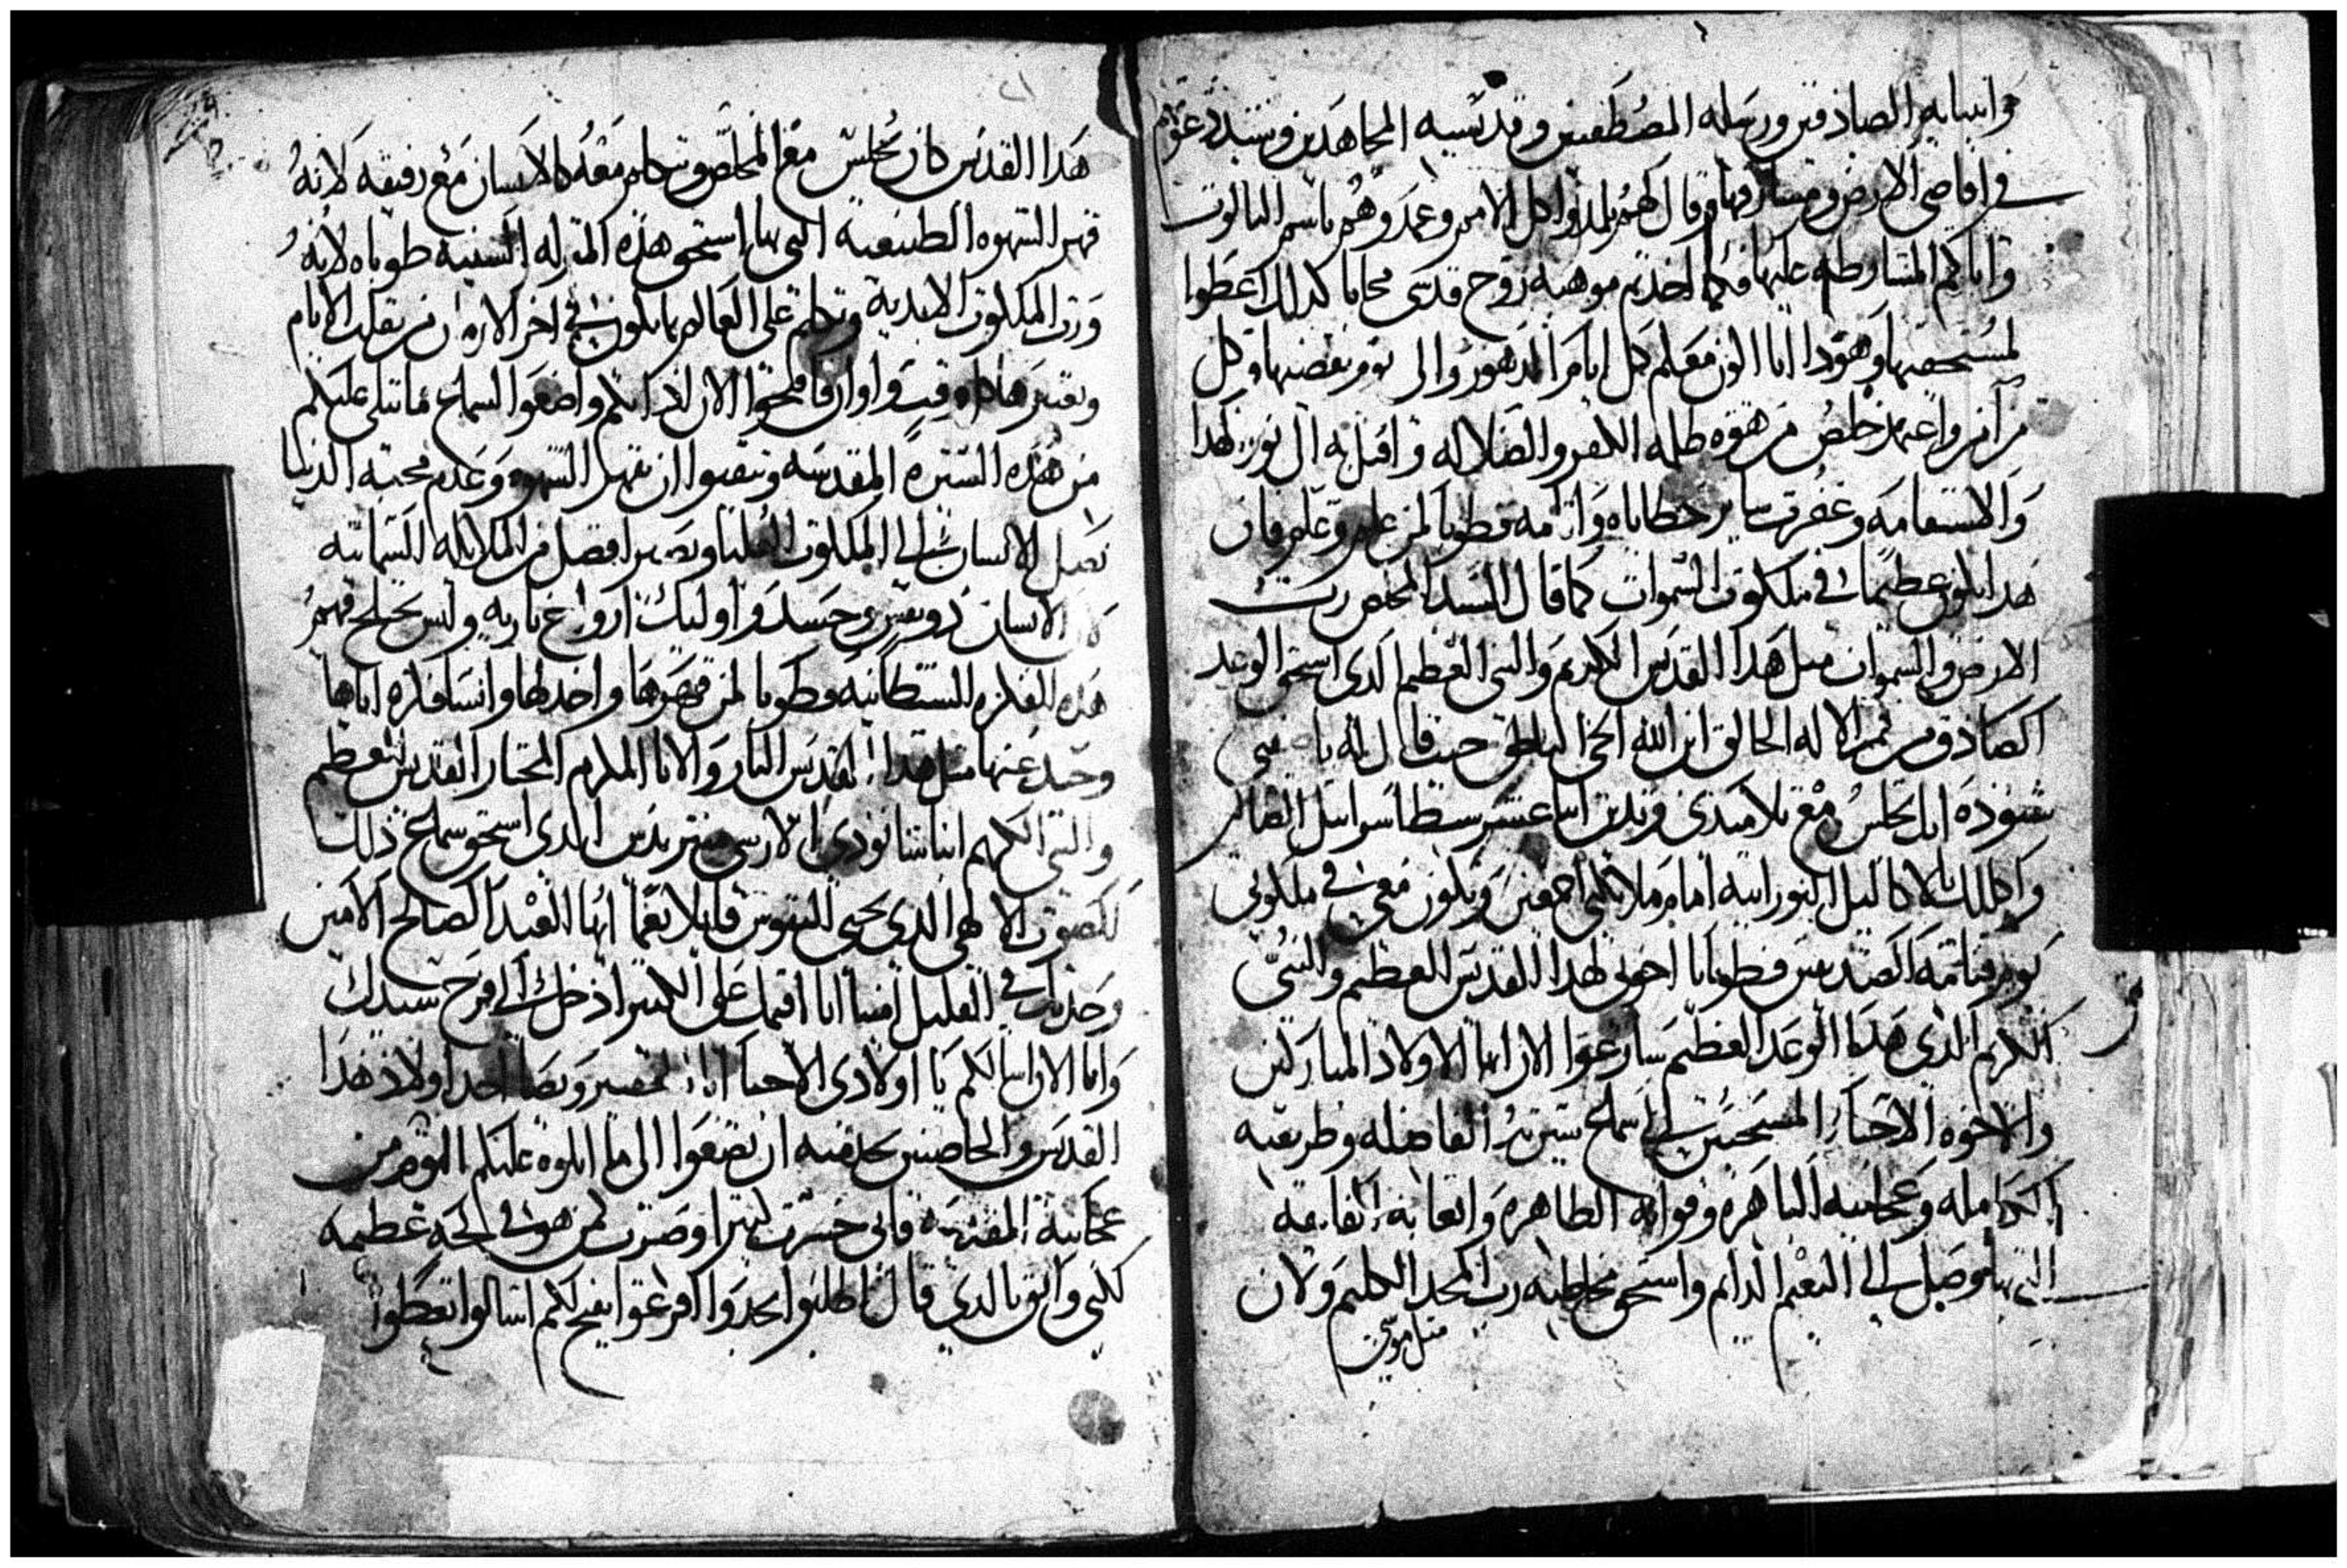 وانبيايه الصادقين ورسله المصطفين وقديسيه المجاهدين وشتت دعوتهم
في اقاصي الارض ومشارقها وقال لهم تلمذوا كل الامم وعمدوهم باسم الثالوث
واياكم المشارطه عليها فكما اخدتم موهبة روح قدسي مجانا كدلك اعطوا
لمستحقيها وهودا انا اكون معكم كل ايام الدهور والى يوم نقضيها وكل
من آمن واعتمد خلص من هوة ظلمه الكفر والضلاله واقبل به الى نور الهدا
والاستقامه وغفرت ساير خطاياه واثامه فطوبا لمن عمل وعلم فان
هدا يكون عظيما في ملكوت السموات كما قال السيد المخلص رب
الارض والسموات مثل هدا القديس الكريم والنبي العظيم الدي استحق الوعد
الصادق من فم الاله الخالق ابن الله الحي الناطق حيث قال له يا
شنوده انك تجلس مع تلاميدي وتدين اثنا عشر سبط اسراييل الظالمين
واكللك بالاكاليل النورانيه امام ملايكتي اجمعين وتكون معي في ملكوتي
يوم قيامة الصديقين فطوبا يا اخوتي لهدا القديس العظيم والنبي
الكريم الدي هدا الوعد العظيم سارعوا الان ايها الاولاد المباركين
والاخوه الاحبا المسيحيين الى سماع سيرته الفاضله وطريقته
الكامله وعجايبه الباهره وقواته الطاهره واتعابه الفايقه
التي بها وصل الى النعيم الدايم واستحق مخاطبة رب المجد الكليم ولان
مثل موسى
هدا القديس كان يجلس مع المخلص وتكلم معه كالانسان مع رفيقه لانه
قهر الشهوه الطبيعية التي بها استحق هده المنزله السنيه طوباه لانه
ورث الملكوت الابدية وتكلم على العالم بما يكون في اخر الازمان من تقلب الايام
وتغير وقت واوان فافتحوا الان ادانكم واضغوا لسماع ما يتلى عليكم
من هده السيرة المقدسه وتيقنوا ان بقهر الشهوه وعدم محبة الدنيا
يصل الانسان الى الملكوت العليا ويصير افضل من الملايكه السماييه
لان الانسان دو نفس وجسد واوليك ارواح ناريه وليس يختلج فيهم
هده الفكره الشيطانيه فطوبا لمن قهرها واخدلها وانسا فكره اياها
وحيد عنها مثل هدا القديس البار والانا المكرم المختار القديس العظيم
والنبي الكريم ابينا شنوده الارشي متريدس الدي استحق سماع دلك
الصوت الالهي الدي يحيي النفوس قايلا نعما ايها العبد الصالح الامين
وجدت في القليل امينا انا اقيمك على الكثير ادخل الى فرح سيدك
وانا الان اسالكم يا اولادي الاحبا
القديس والحاضرين بحدقيه ان تضغوا الى ما اتلوه عليكم اليوم من
عجايبه فاني خسرت كثيرا وصرت كمن هو في لجه عظيمه
لكني واثق بالدي قال اطلبوا تجدوا اقرعوا يفتح لكم اسالوا تعطوا